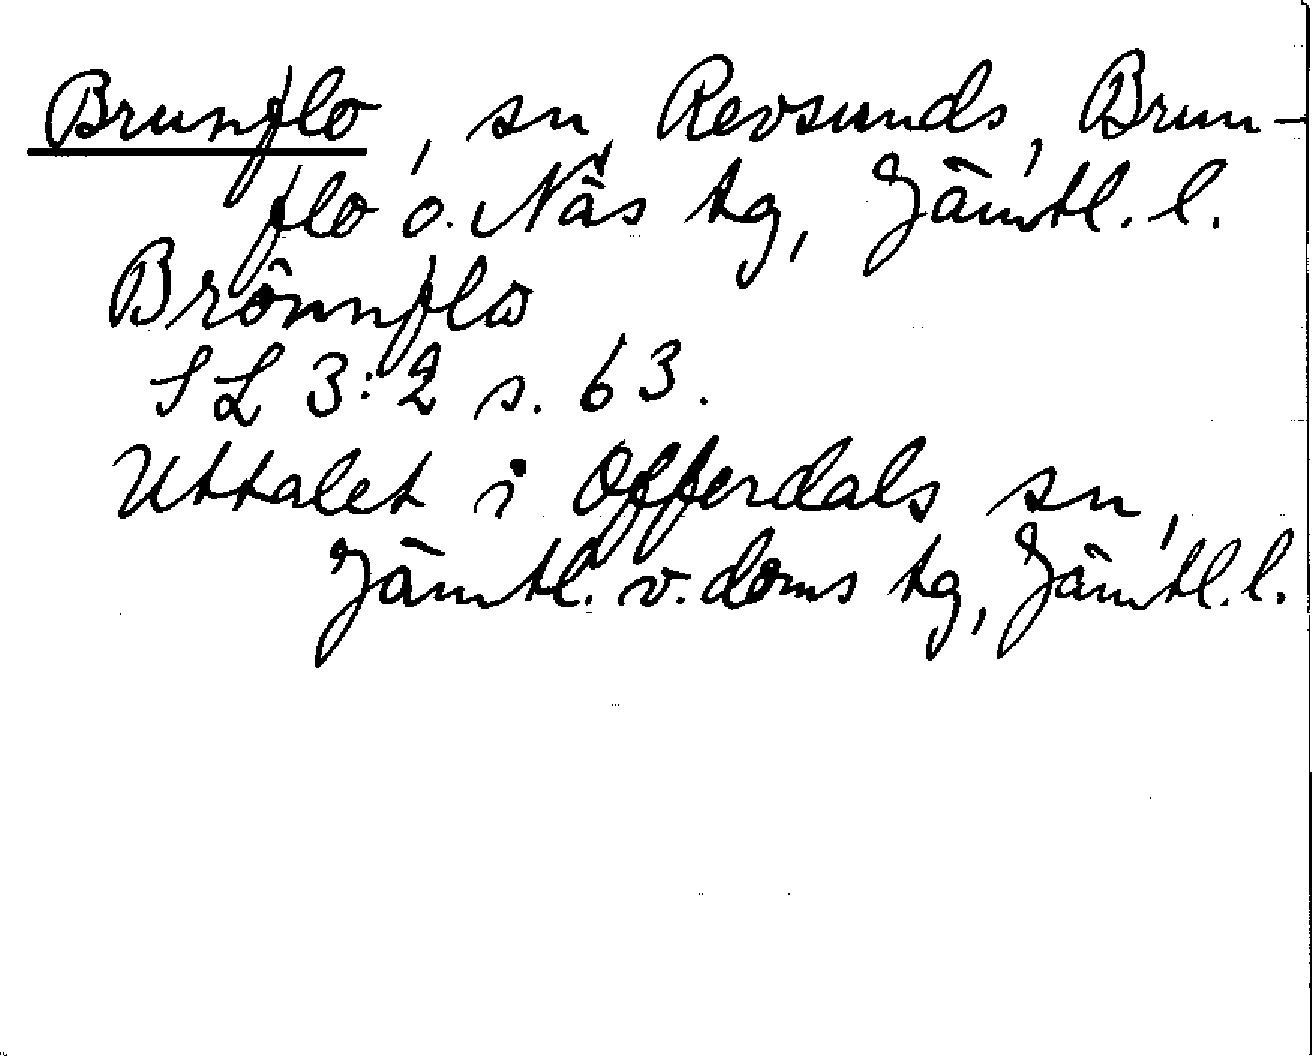 Brunflo, sn, Revsunds, Brun-
flo o. Näs tg, Jämtl. l.
Brönnflo
SL 3:2 s. 63.
Uttalet i Offerdals sn,
Jämtl. v. doms tg, Jämtl. l.